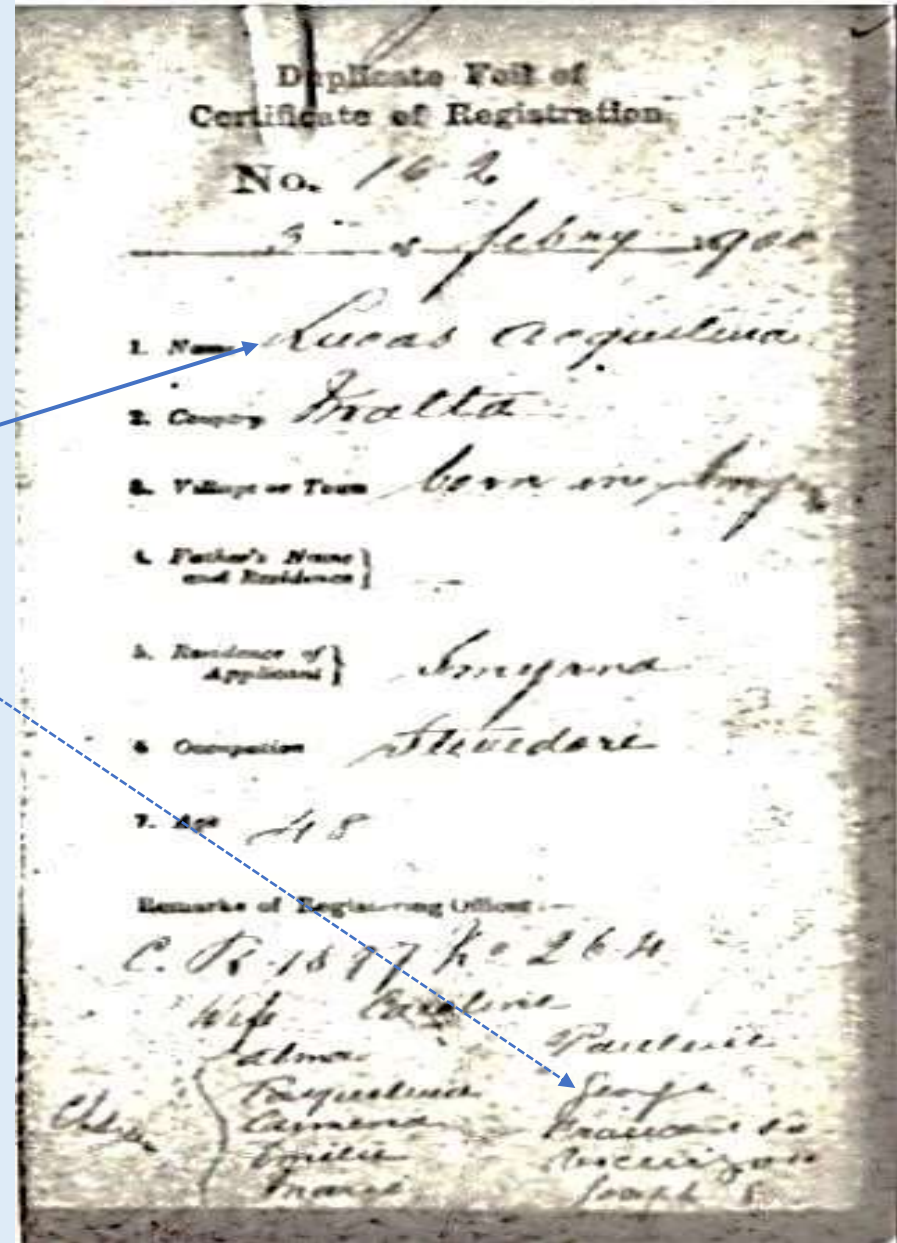 Duplicate Foil of
Certificate of Registration
No. 162
3 of Febry 1900
1. Name Lucas Acquilina
2. Country Malta
3. Village or Town born in
4. Father's Name and Residence }
5. Residence of Applicant } Smyrna
6 Occupation Stevedore
7. Age 48
Remarks of Registering Officer :—
C. R. 1897 No 264
Wife Caroline
Pauline
George
Carmena
Emilie
Joseph